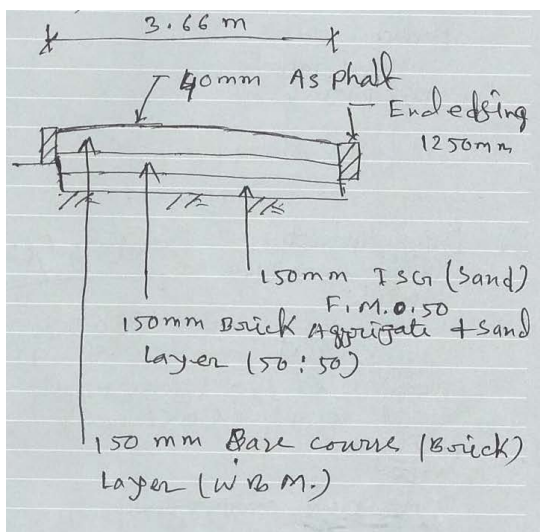 3.66 m
40mm Asphalt
End edging
1250mm
150mm ISG (Sand)
F.M.0.50
150mm Brick Aggrigate + Sand
Layer (50:50)
150 mm Base course (Brick)
Layer (W B M.)